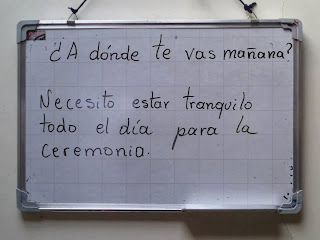 ¿A dónde te vas mañana?
Necesito estar tranquilo
todo el día para la
ceremonia.